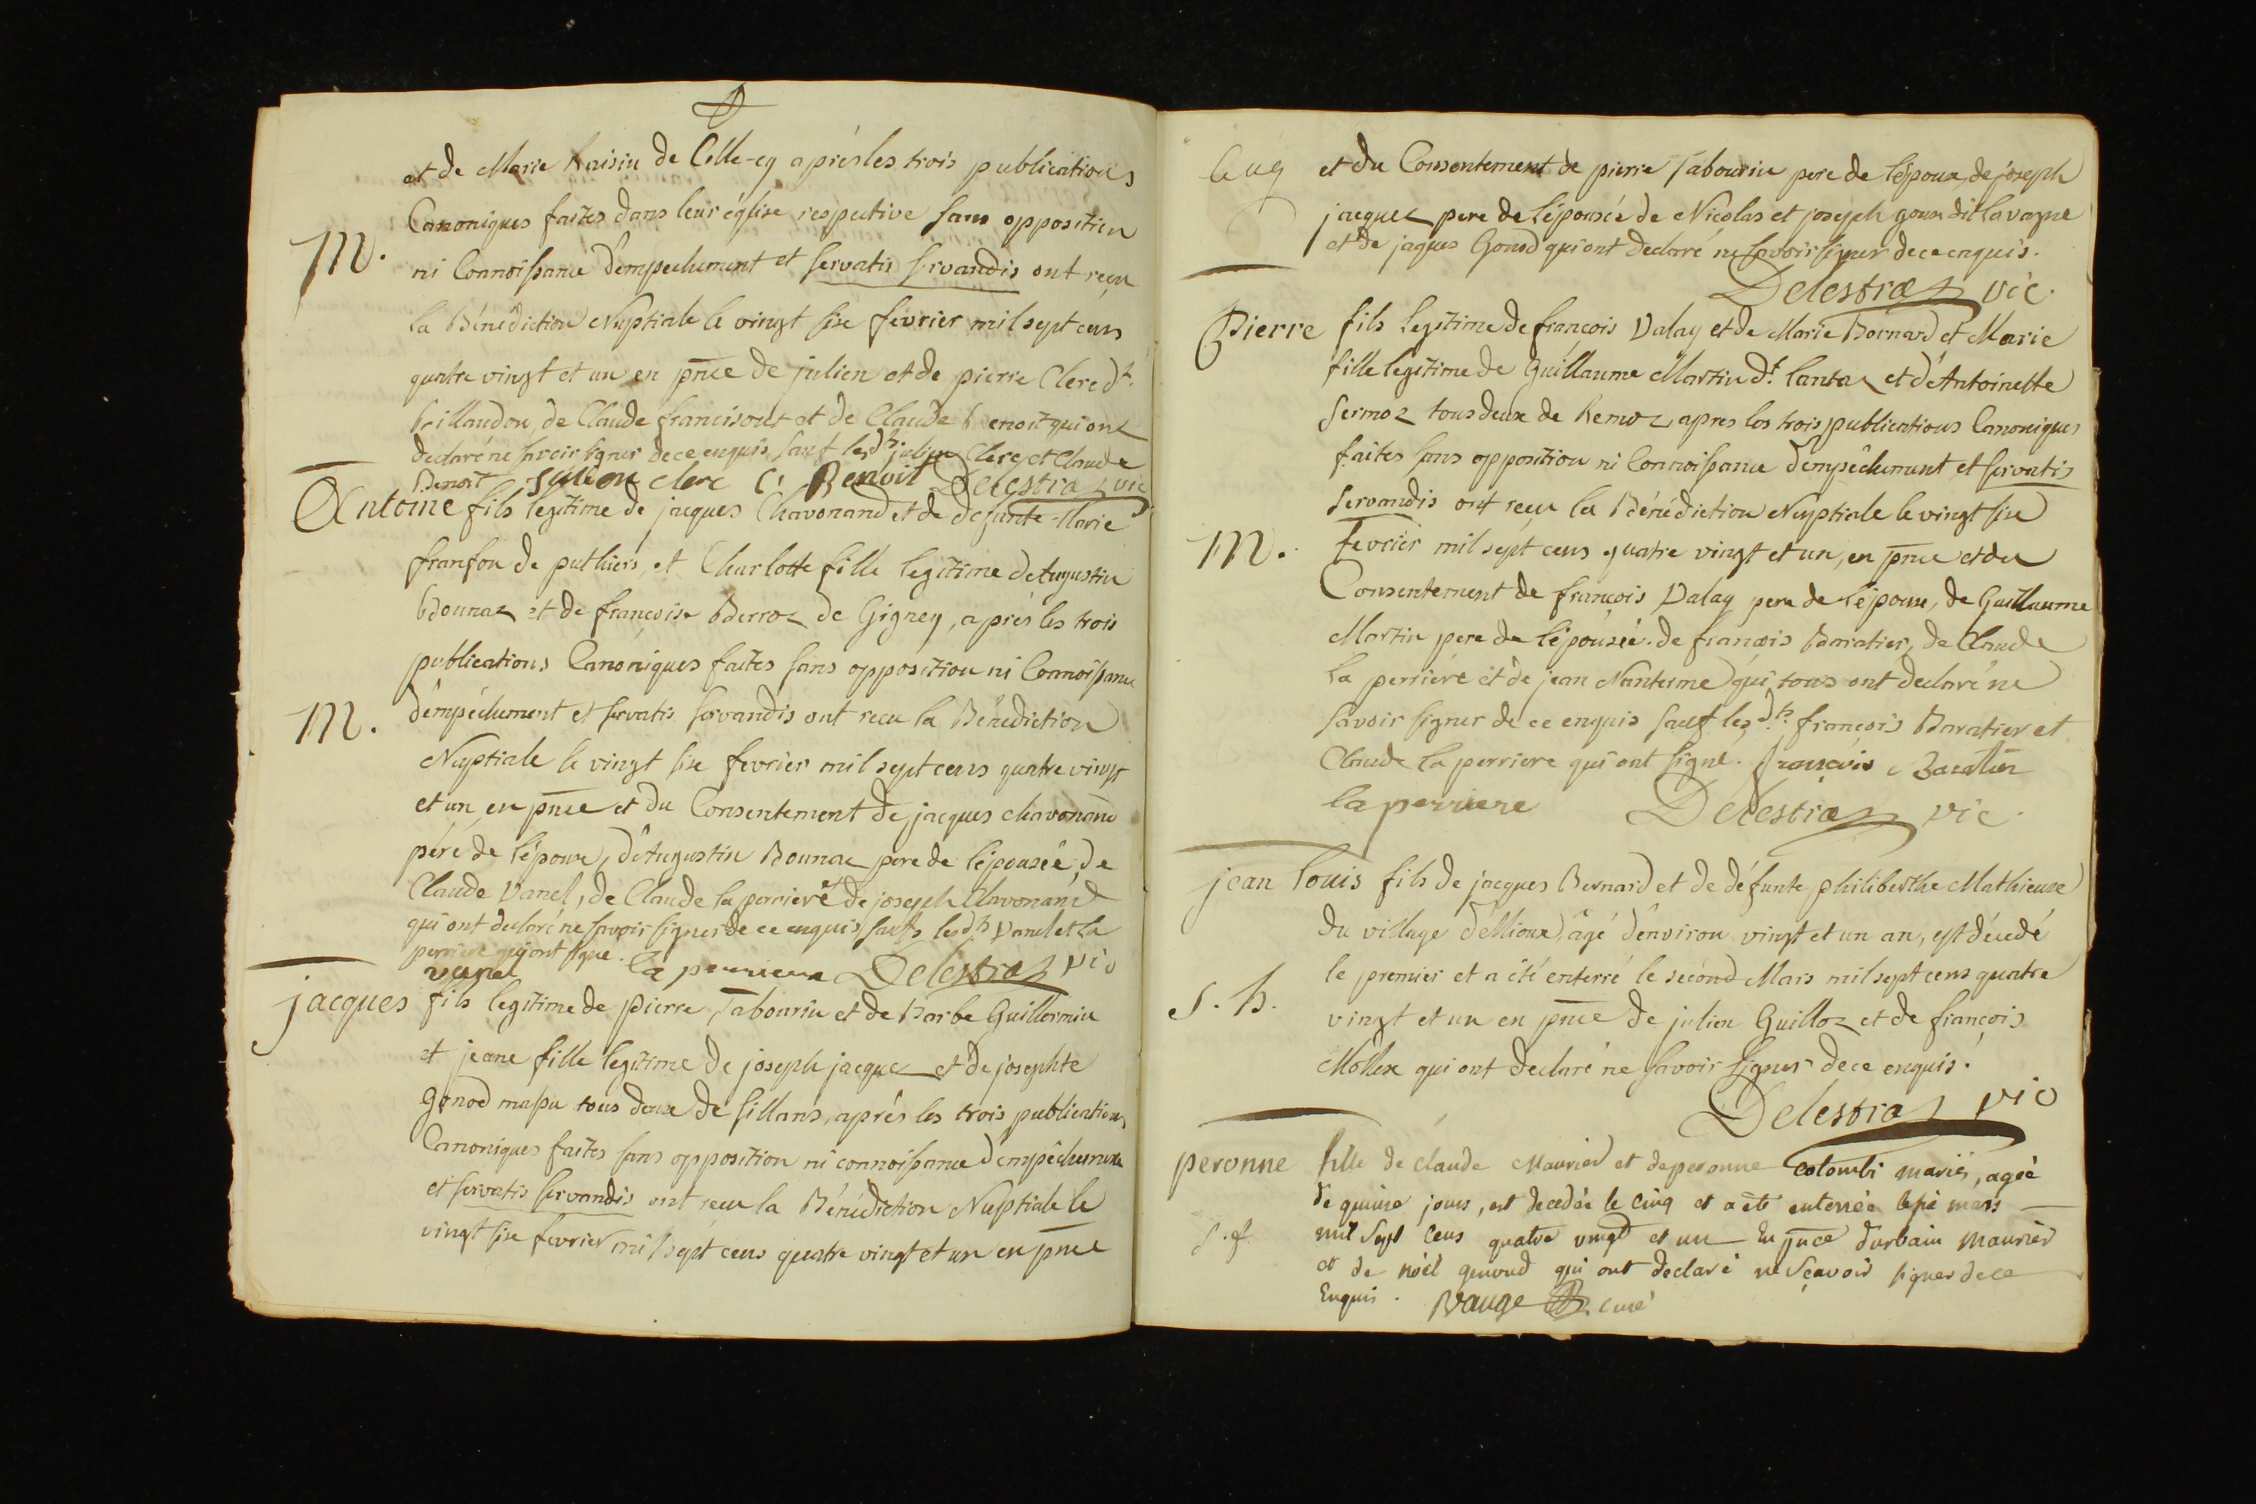 et de Marie Raisin de Celle-cy aprés les trois publications
Canoniques faites dans leur église respective sans opposition
M.
ni Connoissance d'empechement et servatis servandis ont reçu
la Bénédiction Nuptiale le vingt six fevrier mil sept cens
quatre vingt et un en pnce de julien et de pierre Clerc dt.
brillandon, de Claude francisout et de Claude Benoit qui ont
declaré ne savoir signer de ce enquis sauf lesdts. julien Clerc et Claude
Benoit julien clerc C. Benoit Delestraz vic
Antoine fils legitime de jacques Chavonand et de defunte Marie
franfon de puthiers, et Charlotte fille legitime d'Augustin
Bonnaz et de françoise Berroz de Gigney, aprés les trois
publications Canoniques faites sans opposition ni Connoissance
M.
d'empéchement et servatis servandis ont recu la Bénédiction
Nuptiale le vingt six fevrier mil sept cens quatre vingt
et un en pnce et du Consentement de jacques chavonand
pére de l'époux, d'Augustin Bonnaz pere de l'épousée, de
Claude Vanel, de Claude la perriere et de joseph Chavonand
qui ont declaré ne savoir signer de ce enquis saufs lesdts Vanel et la
perriere qui ont signé.
vanel la perriere Delestraz vic
jacques fils legitime de pierre Tabourin et de Barbe Guillermin
et jeane fille legitime de joseph jacquez et de josephte
Gonod massu tous deux de sillans, aprés les trois publications
Canoniques faites sans opposition ni connoissance d'empêchement
et servatis servandis ont recu la Bénédiction Nuptiale le
vingt six fevrier mil sept cens quatre vingt et un en pnce
et du Consentement de pierre Tabourin pere de l'époux, de joseph
jacquez pere de l'épousée de Nicolas et joseph goux dit lavagne
et de jaques Gonod qui ont declaré ne savoir signer de ce enquis.
Delestraz vic.
Pierre fils legitime de françois Valay et de Marie Bornard et Marie
fille legitime de Guillaume Martin dt. lantaz et d'Antoinette
sermoz tous deux de Remoz, apres les trois publications Canoniques
faites sans opposition ni Connoissance d'empêchement et servatis
servandis ont reçu la Bénédiction Nuptiale le vingt six
M.
fevrier mil sept cens quatre vingt et un, en pnce et du
Consentement de françois Valay pere de l'époux, de Guillaume
Martin pere de l'épousée. de françois Baratier, de Claude
la perriere et de jean Nanterme qui tous ont declaré ne
savoir signer de ce enquis sauf lesdts. françois Baratier et
Claude la perriere qui ont signé. françois Baratier
la perriere Delestraz vic.
jean louis fils de jacques Bernard et de défunte philiberthe Mathieux
du village d'Ellioux, âgé d'environ vingt et un an, est décedé
le premier et a été enterré le second Mars mil sept cens quatre
S. h.
vingt et un en pnce de julien Guilloz et de françois
Mollex qui ont declaré ne savoir signer de ce enquis.
Delestraz vic
peronne fille de claude Maurier et de peronne colombi mariés, ageé
de quinze jours, est decedée le cinq et a été enterrée le six mars
S. f.
mil sept cens quatre vingt et un En pnce d'urbain Maurier
et de noël genoud qui ont declaré ne sçavoir signer de ce
Enquis. Bauge curé